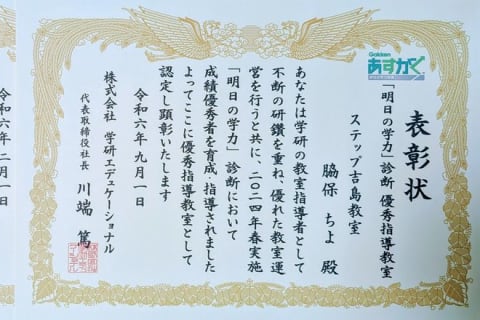 Gakken
あすがく
表彰状
「明日の学力」診断 優秀指導教室
ステップ吉島教室
脇保 ちよ 殿
あなたは学研の教室指導者として
不断の研鑽を重ね、優れた教室運
営を行うと共に、二〇二四年春実施
「明日の学力」診断において
成績優秀者を育成、指導されました
よってここに優秀指導教室として
認定し顕彰いたします
令和六年九月一日
株式会社 学研エデュケーショナル
代表取締役社長 川端 篤
令和六年二月一日